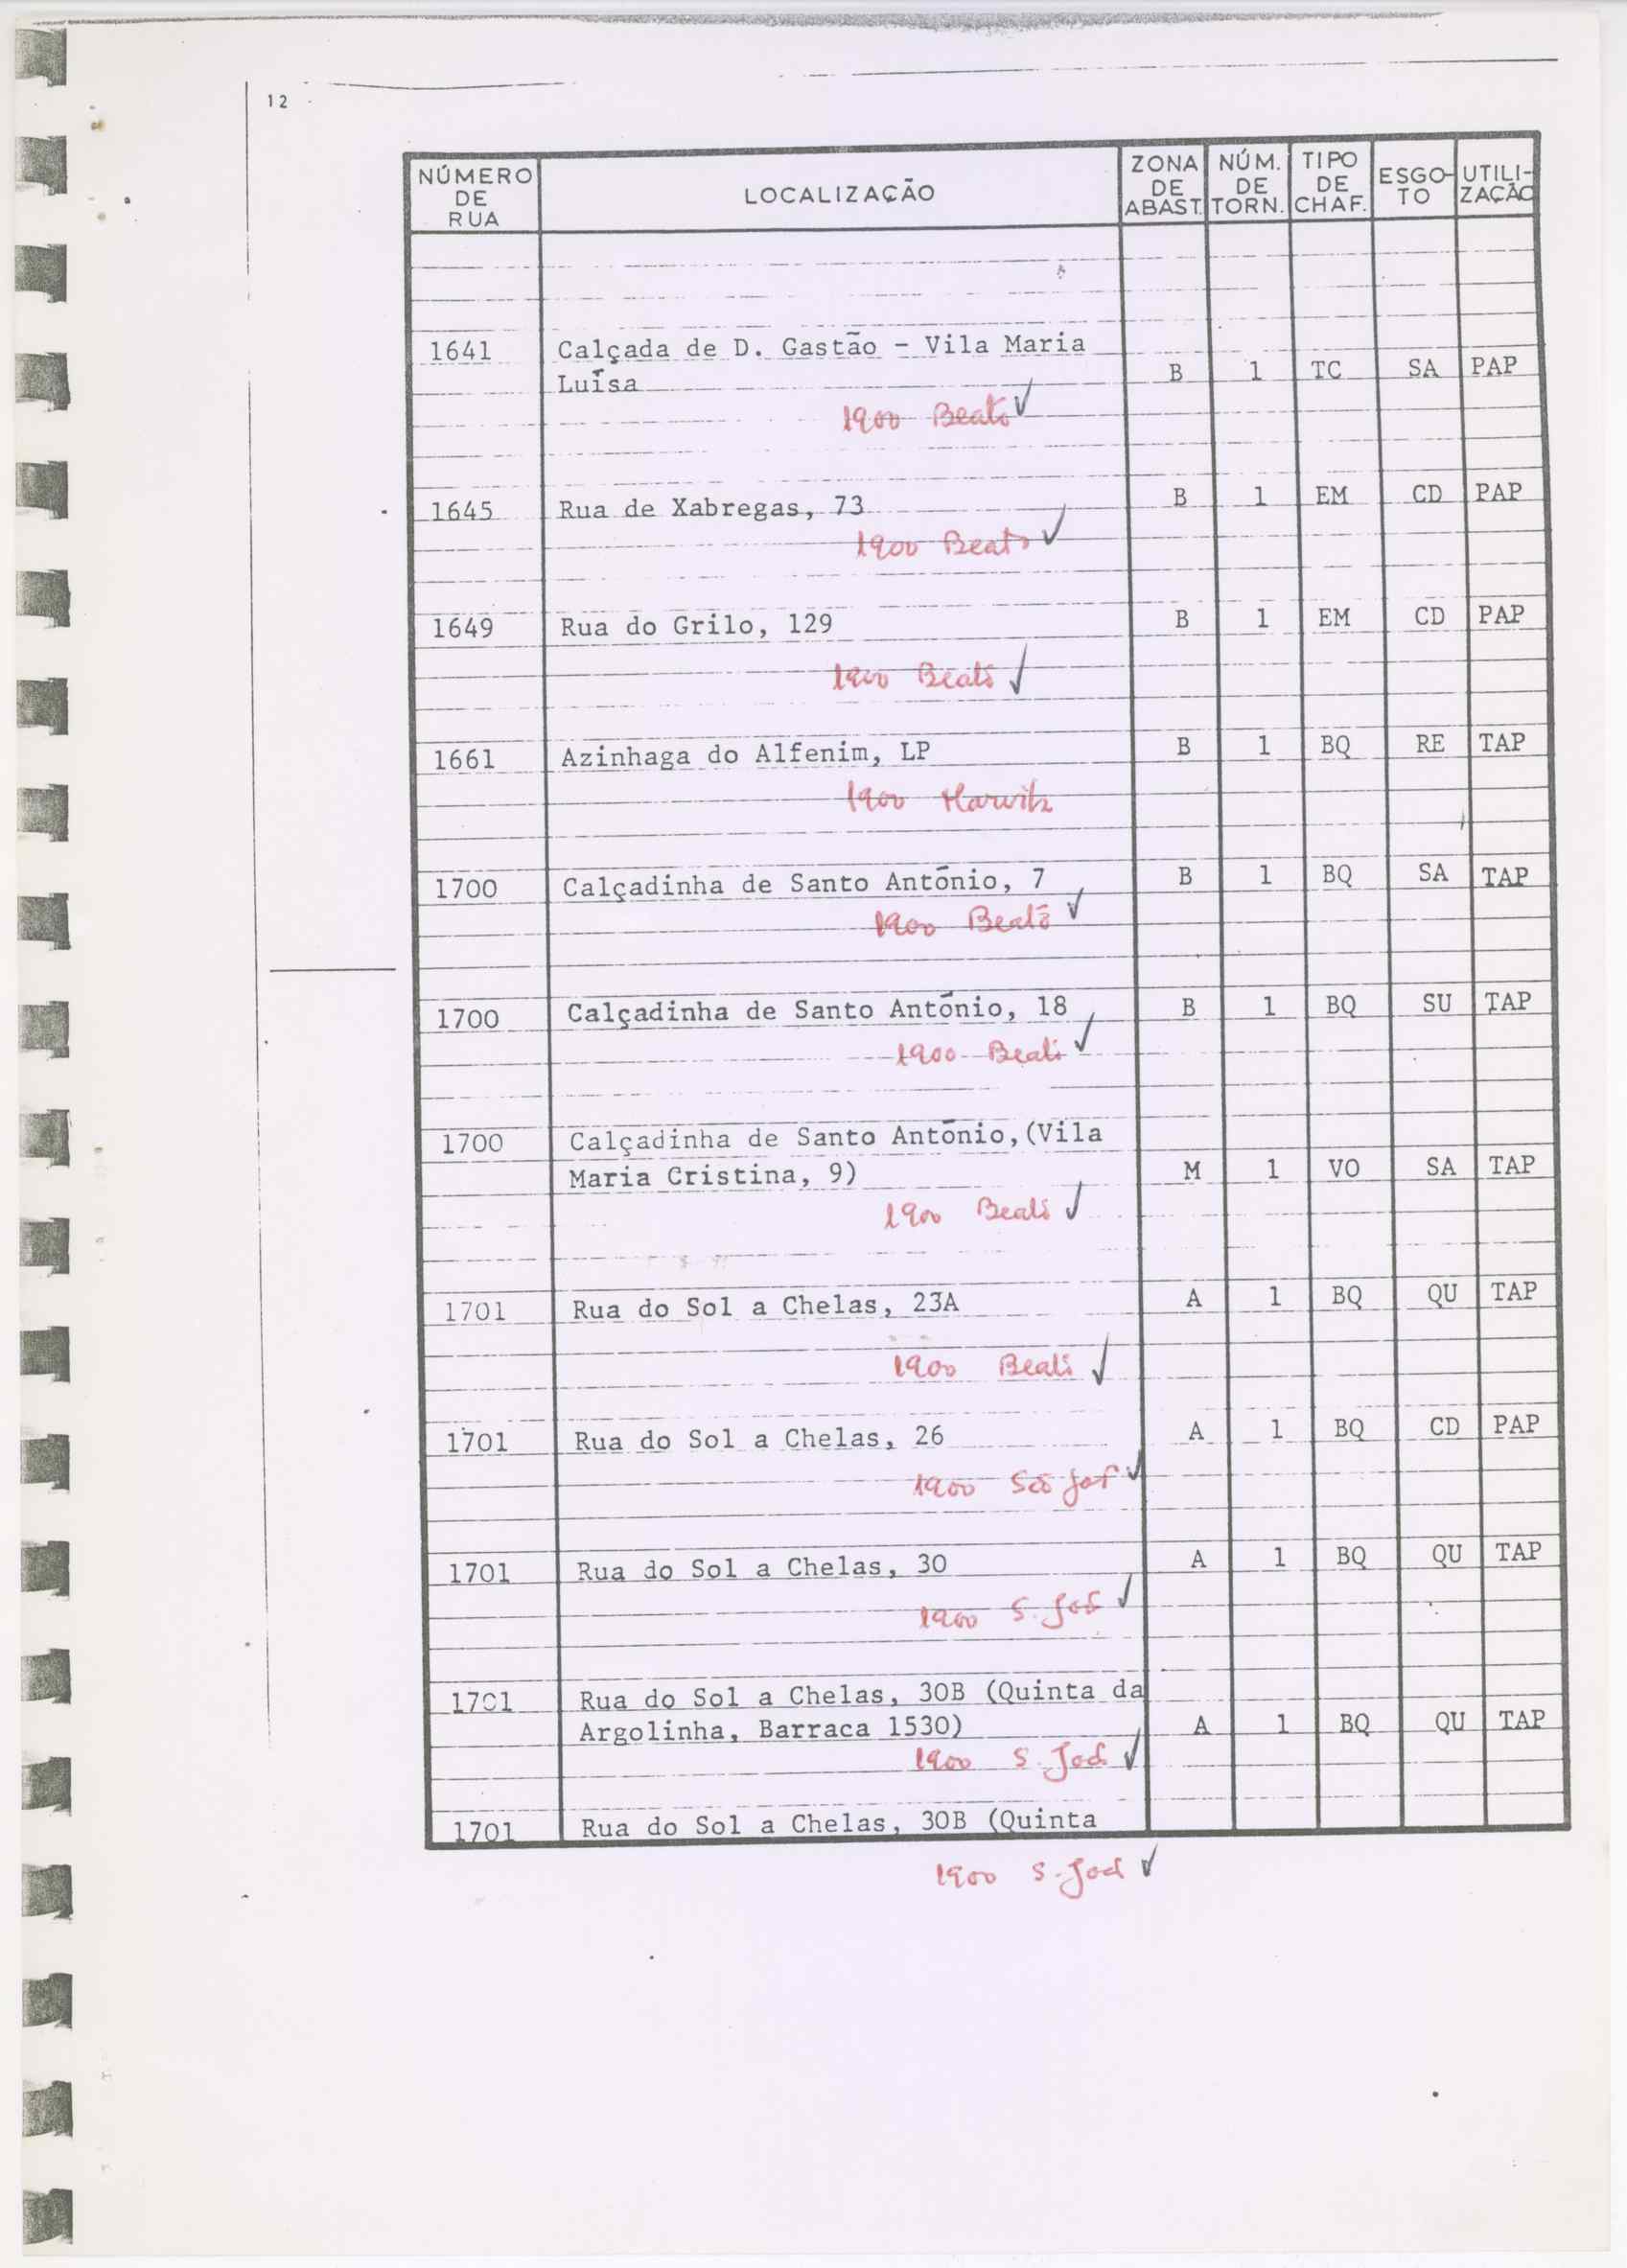 12
NÚMERO DE RUA LOCALIZAÇÃO ZONA DE ABAST. NÚM. DE TORN. TIPO DE CHAF. ESGO-TO UTILI-ZAÇÃO
1641 Calçada de D. Gastão - Vila Maria
Luísa B 1 TC SA PAP
1900 Beato ✓
1645 Rua de Xabregas, 73 B 1 EM CD PAP
1900 Beato ✓
1649 Rua do Grilo, 129 B 1 EM CD PAP
1900 Beato ✓
1661 Azinhaga do Alfenim, LP B 1 BQ RE TAP
1900
1700 Calçadinha de Santo António, 7 B 1 BQ SA TAP
1900 Beato ✓
1700 Calçadinha de Santo António, 18 B 1 BQ SU TAP
1900 Beato ✓
1700 Calçadinha de Santo António,(Vila
Maria Cristina, 9) M 1 VO SA TAP
1900 Beato ✓
1701 Rua do Sol a Chelas, 23A A 1 BQ QU TAP
1900 Beato ✓
1701 Rua do Sol a Chelas, 26 A 1 BQ CD PAP
1900 São ✓
1701 Rua do Sol a Chelas, 30 A 1 BQ QU TAP
1900 S. ✓
1701 Rua do Sol a Chelas, 30B (Quinta da
Argolinha, Barraca 1530) A 1 BQ QU TAP
1900 S. ✓
1701 Rua do Sol a Chelas, 30B (Quinta
1900 S. ✓